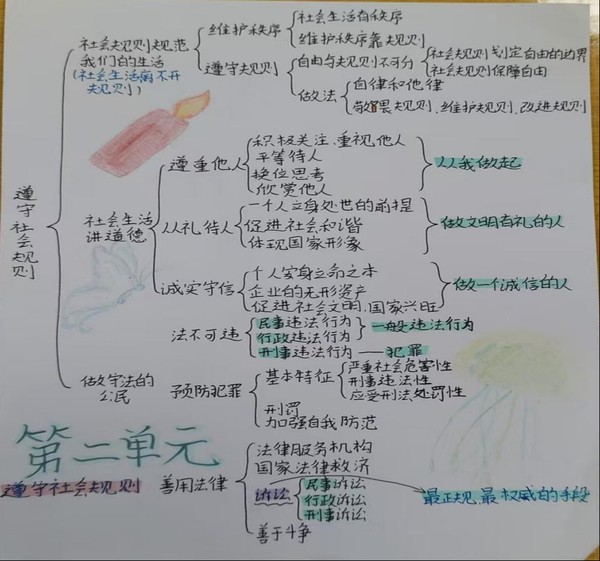 遵守社会规则
社会规则规范
我们的生活
(社会生活离不开
规则)
维护秩序
社会生活有秩序
维护秩序靠规则
遵守规则
自由与规则不可分
社会规则划定自由的边界
社会规则保障自由
做法
自律和他律
敬畏规则、维护规则、改进规则
社会生活
讲道德
尊重他人
积极关注、重视他人
平等待人
换位思考
欣赏他人
从我做起
以礼待人
一个人立身处世的前提
促进社会和谐
体现国家形象
做文明有礼的人
诚实守信
个人安身立命之本
企业的无形资产
促进社会文明、国家兴旺
做一个诚信的人
做守法的
公民
法不可违
民事违法行为
行政违法行为
一般违法行为
刑事违法行为——犯罪
预防犯罪
基本特征
严重社会危害性
刑事违法性
应受刑法处罚性
刑罚
加强自我防范
善用法律
法律服务机构
国家法律救济
诉讼
民事诉讼
行政诉讼
刑事诉讼
最正规、最权威的手段
善于斗争
第二单元
遵守社会规则